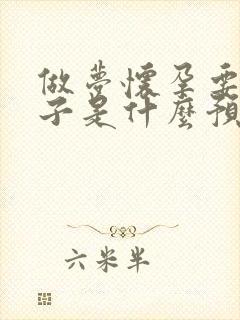 做梦懷孕要
子是什麼預
六米半